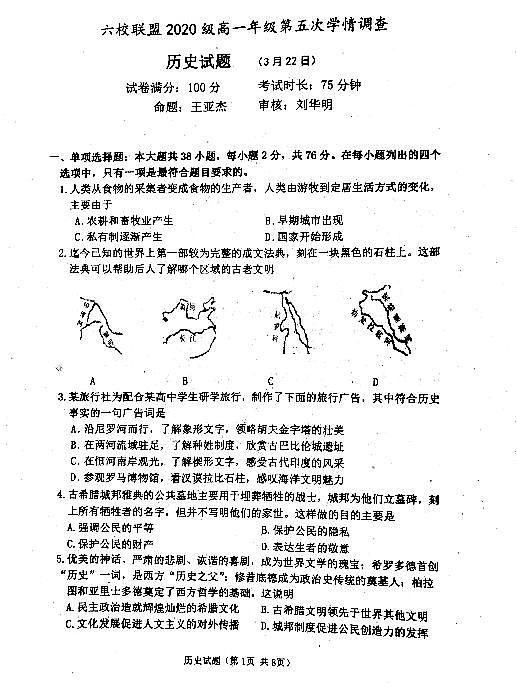 六校联盟2020级高一年级第五次学情调查
历史试题 (3月22日)
试卷满分：100分 考试时长：75分钟
命题：王亚杰 审核：刘华明
一、单项选择题：本大题共38小题，每小题2分，共76分。在每小题列出的四个
选项中，只有一项是最符合题目要求的。
1.人类从食物的采集者变成食物的生产者，人类由游牧到定居生活方式的变化，
主要由于
A.农耕和畜牧业产生 B.早期城市出现
C.私有制逐渐产生 D.国家开始形成
2.迄今已知的世界上第一部较为完整的成文法典，刻在一块黑色的石柱上。这部
法典可以帮助后人了解哪个区域的古老文明
黄河
长江
尼罗河
A B C D
3.某旅行社为配合某高中学生研学旅行，制作了下面的旅行广告，其中符合历史
事实的一句广告词是
A.沿尼罗河而行，了解象形文字，领略胡夫金字塔的壮美
B.在两河流域驻足，了解种姓制度，欣赏古巴比伦城遗址
C.在恒河南岸观光，了解楔形文字，感受古代印度的风采
D.参观罗马博物馆，看汉谟拉比石柱，感叹海洋文明魅力
4.古希腊城邦雅典的公共墓地主要用于埋葬牺牲的战士，城邦为他们立墓碑，刻
上所有牺牲者的名字，但并不写明他们的家世。这样做的目的主要是
A.强调公民的平等 B.保护公民的隐私
C.保护公民的财产 D.表达生者的敬意
5.优美的神话，严肃的悲剧、诙谐的喜剧，成为世界文学的瑰宝；希罗多德首创
“历史”一词，是西方“历史之父”；修昔底德成为政治史传统的奠基人；柏拉
图和亚里士多德奠定了西方哲学的基础。这说明
A.民主政治造就辉煌灿烂的希腊文化 B.古希腊文明领先于世界其他文明
C.文化发展促进人文主义的对外传播 D.城邦制度促进公民创造力的发挥
历史试题（第1页 共8页）